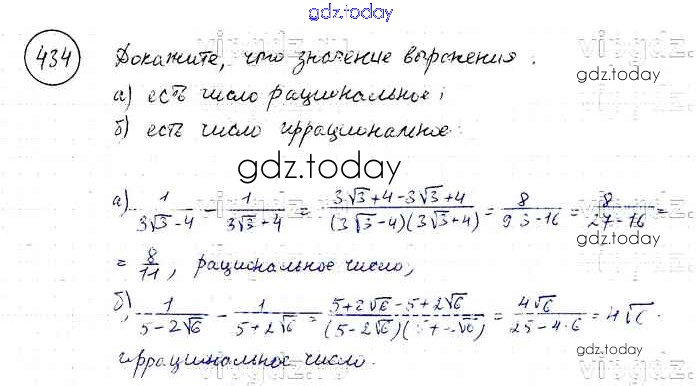 gdz.today
434 Докажите, что значение выражения.
gdz.today
а) есть число рациональное;
б) есть число иррациональное.
gdz.today
а) 1/(3√3-4) - 1/(3√3+4) = (3√3+4-3√3+4)/((3√3-4)(3√3+4)) = 8/(9·3-16) = 8/(27-16) =
= 8/11, рациональное число;
б) 1/(5-2√6) - 1/(5+2√6) = (5+2√6-5+2√6)/((5-2√6)(5+2√6)) = 4√6/(25-4·6) = 4√6.
gdz.today
иррациональное число.